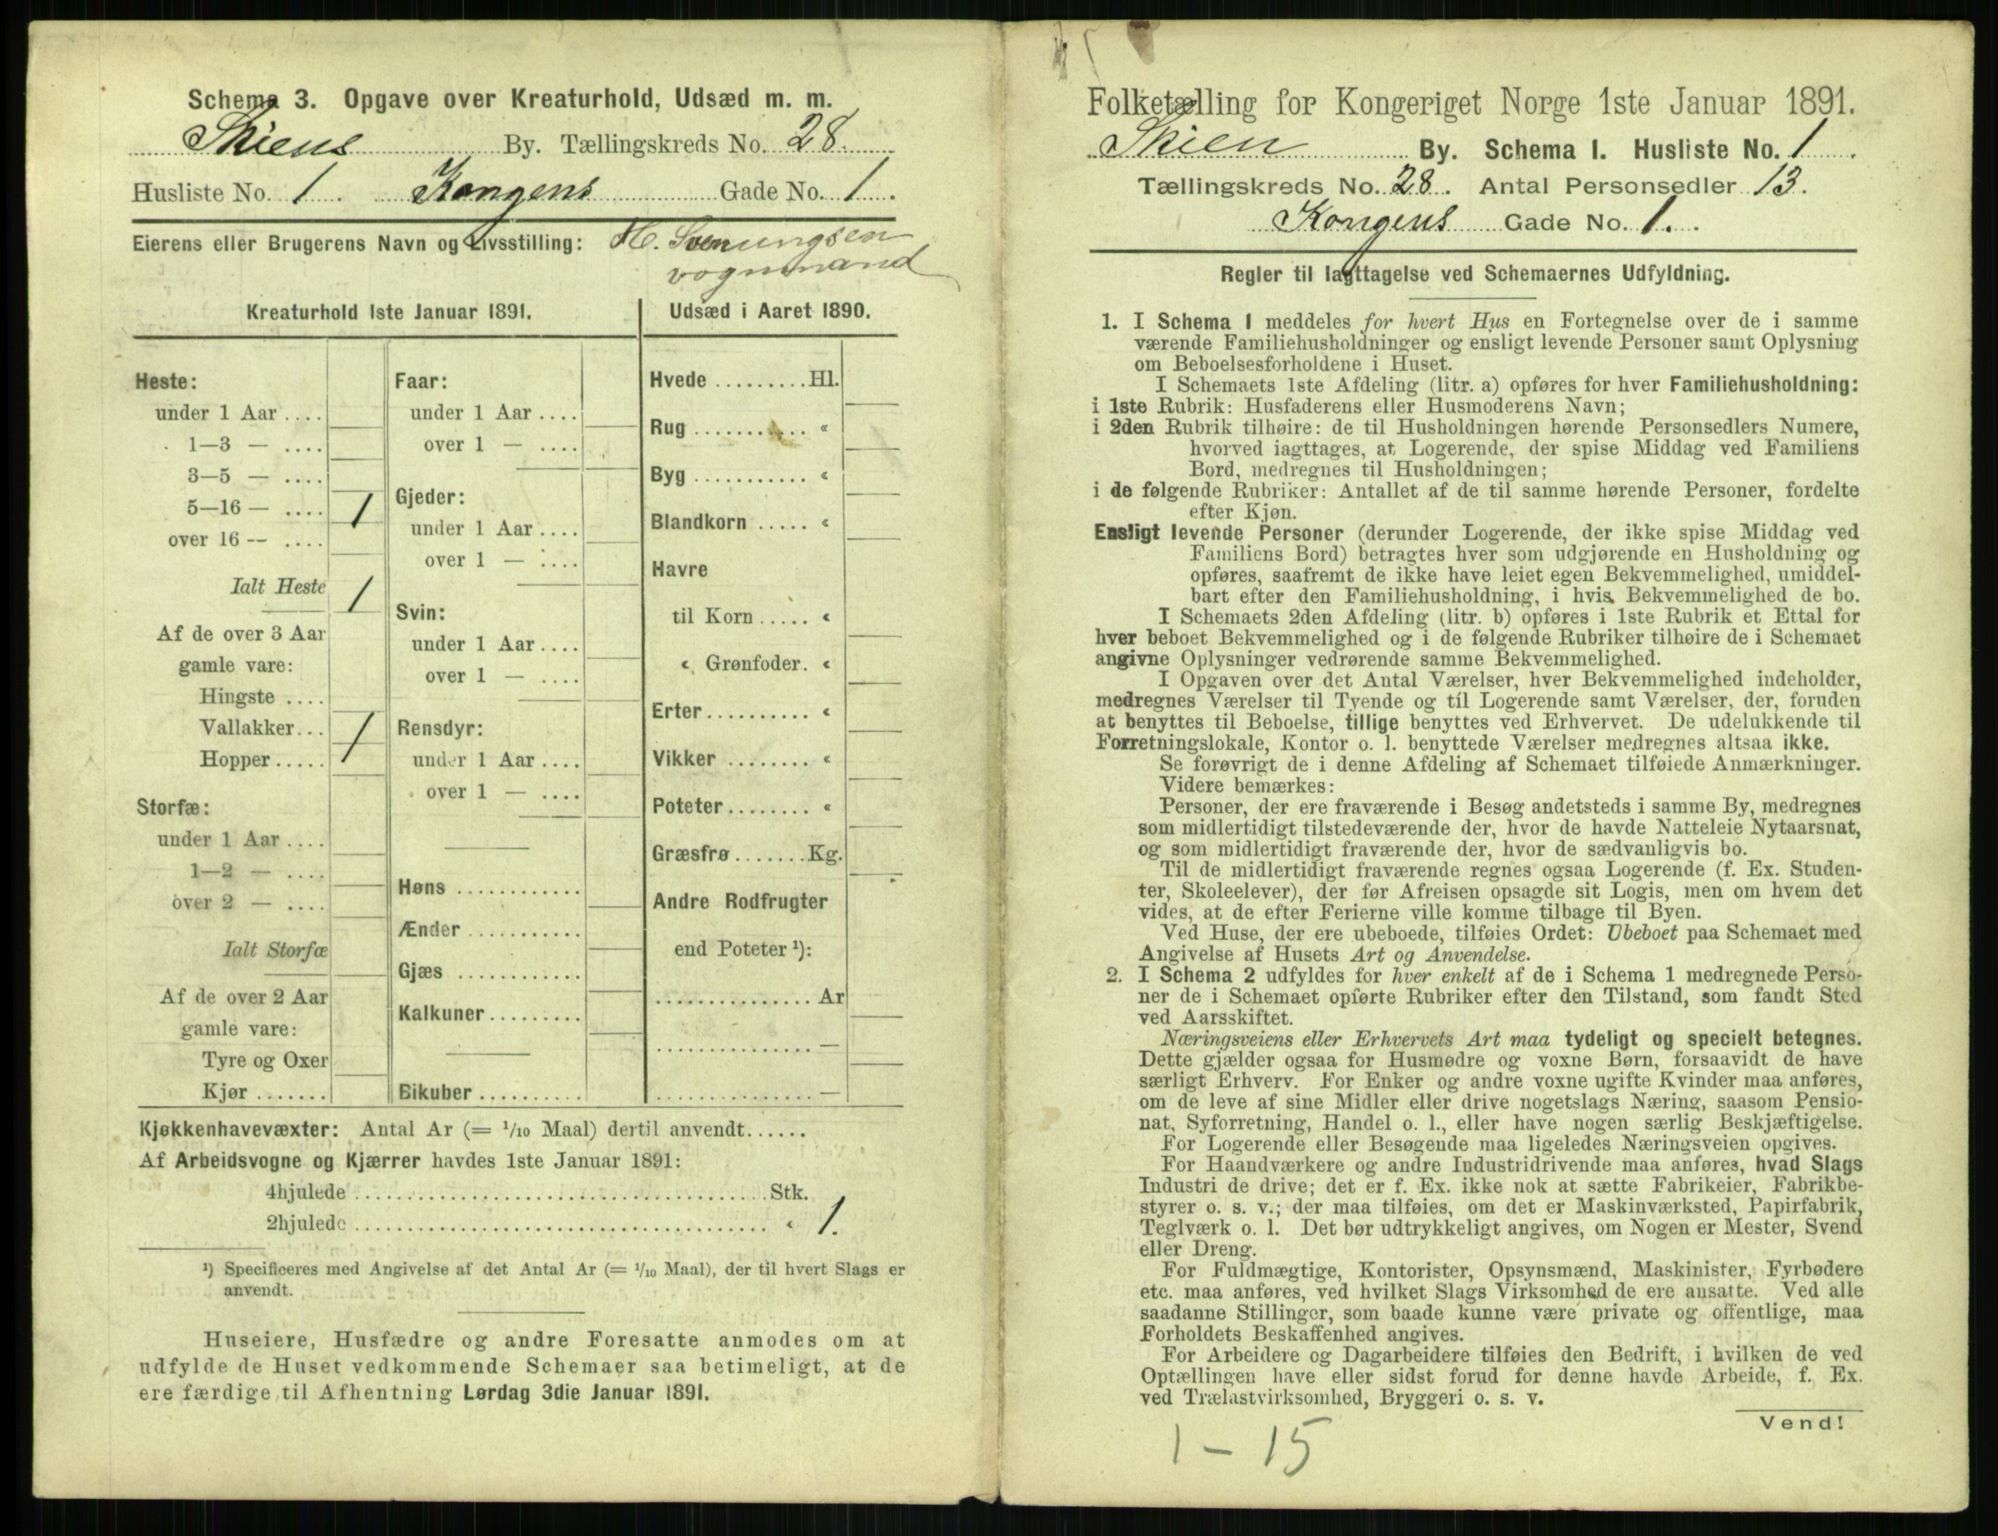 Schema 3. Opgave over Kreaturhold, Udsæd m. m.
Skiens By. Tællingskreds No. 28.
Husliste No. 1 Kongens Gade No. 1.
Eierens eller Brugerens Navn og Livsstilling: H. Svenungsen
vognmand
Kreaturhold 1ste Januar 1891.
Heste:
under 1 Aar ....
1—3 — ....
3—5 — ....
5—16 — .... 1
over 16 — ....
Ialt Heste 1
Af de over 3 Aar
gamle vare:
Hingste ....
Vallakker... 1
Hopper ..... 
Storfæ:
under 1 Aar ....
1—2 — ....
over 2 — ....
Ialt Storfæ
Af de over 2 Aar
gamle vare:
Tyre og Oxer
Kjør .......
Faar:
under 1 Aar ....
over 1 — ....
Gjeder:
under 1 Aar ....
over 1 — ....
Svin:
under 1 Aar ....
over 1 — ....
Rensdyr:
under 1 Aar ....
over 1 — ....
Høns ............
Ænder ...........
Gjæs ............
Kalkuner .........
Bikuber ..........
Udsæd i Aaret 1890.
Hvede ......... Hl.
Rug ........... «
Byg ........... «
Blandkorn ..... «
Havre
til Korn ..... «
« Grønfoder. «
Erter .......... «
Vikker ........ «
Poteter ........ «
Græsfrø ....... Kg.
Andre Rodfrugter
end Poteter ¹):
............... Ar
............... —
............... —
Kjøkkenhavevæxter: Antal Ar (= 1/10 Maal) dertil anvendt......
Af Arbeidsvogne og Kjærrer havdes 1ste Januar 1891:
4hjulede ........................................ Stk.
2hjulede ........................................ « 1.
¹) Specificeres med Angivelse af det Antal Ar (= 1/10 Maal), der til hvert Slags er
anvendt.
Huseiere, Husfædre og andre Foresatte anmodes om at
udfylde de Huset vedkommende Schemaer saa betimeligt, at de
ere færdige til Afhentning Lørdag 3die Januar 1891.
Folketælling for Kongeriget Norge 1ste Januar 1891.
Skien By. Schema I. Husliste No. 1
Tællingskreds No. 28. Antal Personsedler 13.
Kongens Gade No. 1.
Regler til Iagttagelse ved Schemaernes Udfyldning.
1. I Schema 1 meddeles for hvert Hus en Fortegnelse over de i samme
værende Familiehusholdninger og ensligt levende Personer samt Oplysning
om Beboelsesforholdene i Huset.
I Schemaets 1ste Afdeling (litr. a) opføres for hver Familiehusholdning:
i 1ste Rubrik: Husfaderens eller Husmoderens Navn;
i 2den Rubrik tilhøire: de til Husholdningen hørende Personsedlers Numere,
hvorved iagttages, at Logerende, der spise Middag ved Familiens
Bord, medregnes til Husholdningen;
i de følgende Rubriker: Antallet af de til samme hørende Personer, fordelte
efter Kjøn.
Ensligt levende Personer (derunder Logerende, der ikke spise Middag ved
Familiens Bord) betragtes hver som udgjørende en Husholdning og
opføres, saafremt de ikke have leiet egen Bekvemmelighed, umiddel-
bart efter den Familiehusholdning, i hvis Bekvemmelighed de bo.
I Schemaets 2den Afdeling (litr. b) opføres i 1ste Rubrik et Ettal for
hver beboet Bekvemmelighed og i de følgende Rubriker tilhøire de i Schemaet
angivne Oplysninger vedrørende samme Bekvemmelighed.
I Opgaven over det Antal Værelser, hver Bekvemmelighed indeholder,
medregnes Værelser til Tyende og til Logerende samt Værelser, der, foruden
at benyttes til Beboelse, tillige benyttes ved Erhvervet. De udelukkende til
Forretningslokale, Kontor o. l. benyttede Værelser medregnes altsaa ikke.
Se forøvrigt de i denne Afdeling af Schemaet tilføiede Anmærkninger.
Videre bemærkes:
Personer, der ere fraværende i Besøg andetsteds i samme By, medregnes
som midlertidigt tilstedeværende der, hvor de havde Natteleie Nytaarsnat,
og som midlertidigt fraværende der, hvor de sædvanligvis bo.
Til de midlertidigt fraværende regnes ogsaa Logerende (f. Ex. Studen-
ter, Skoleelever), der før Afreisen opsagde sit Logis, men om hvem det
vides, at de efter Ferierne ville komme tilbage til Byen.
Ved Huse, der ere ubeboede, tilføies Ordet: Ubeboet paa Schemaet med
Angivelse af Husets Art og Anvendelse.
2. I Schema 2 udfyldes for hver enkelt af de i Schema 1 medregnede Perso-
ner de i Schemaet opførte Rubriker efter den Tilstand, som fandt Sted
ved Aarsskiftet.
Næringsveiens eller Erhvervets Art maa tydeligt og specielt betegnes.
Dette gjælder ogsaa for Husmødre og voxne Børn, forsaavidt de have
særligt Erhverv. For Enker og andre voxne ugifte Kvinder maa anføres,
om de leve af sine Midler eller drive nogetslags Næring, saasom Pensio-
nat, Syforretning, Handel o. l., eller have nogen særlig Beskjæftigelse.
For Logerende eller Besøgende maa ligeledes Næringsveien opgives.
For Haandværkere og andre Industridrivende maa anføres, hvad Slags
Industri de drive; det er f. Ex. ikke nok at sætte Fabrikeier, Fabrikbe-
styrer o. s. v.; der maa tilføies, om det er Maskinværksted, Papirfabrik,
Teglværk o. l. Det bør udtrykkeligt angives, om Nogen er Mester, Svend
eller Dreng.
For Fuldmægtige, Kontorister, Opsynsmænd, Maskinister, Fyrbødere
etc. maa anføres, ved hvilket Slags Virksomhed de ere ansatte. Ved alle
saadanne Stillinger, som baade kunne være private og offentlige, maa
Forholdets Beskaffenhed angives.
For Arbeidere og Dagarbeidere tilføies den Bedrift, i hvilken de ved
Optællingen have eller sidst forud for denne havde Arbeide, f. Ex.
ved Trælastvirksomhed, Bryggeri o. s. v.
Vend!
1 – 15